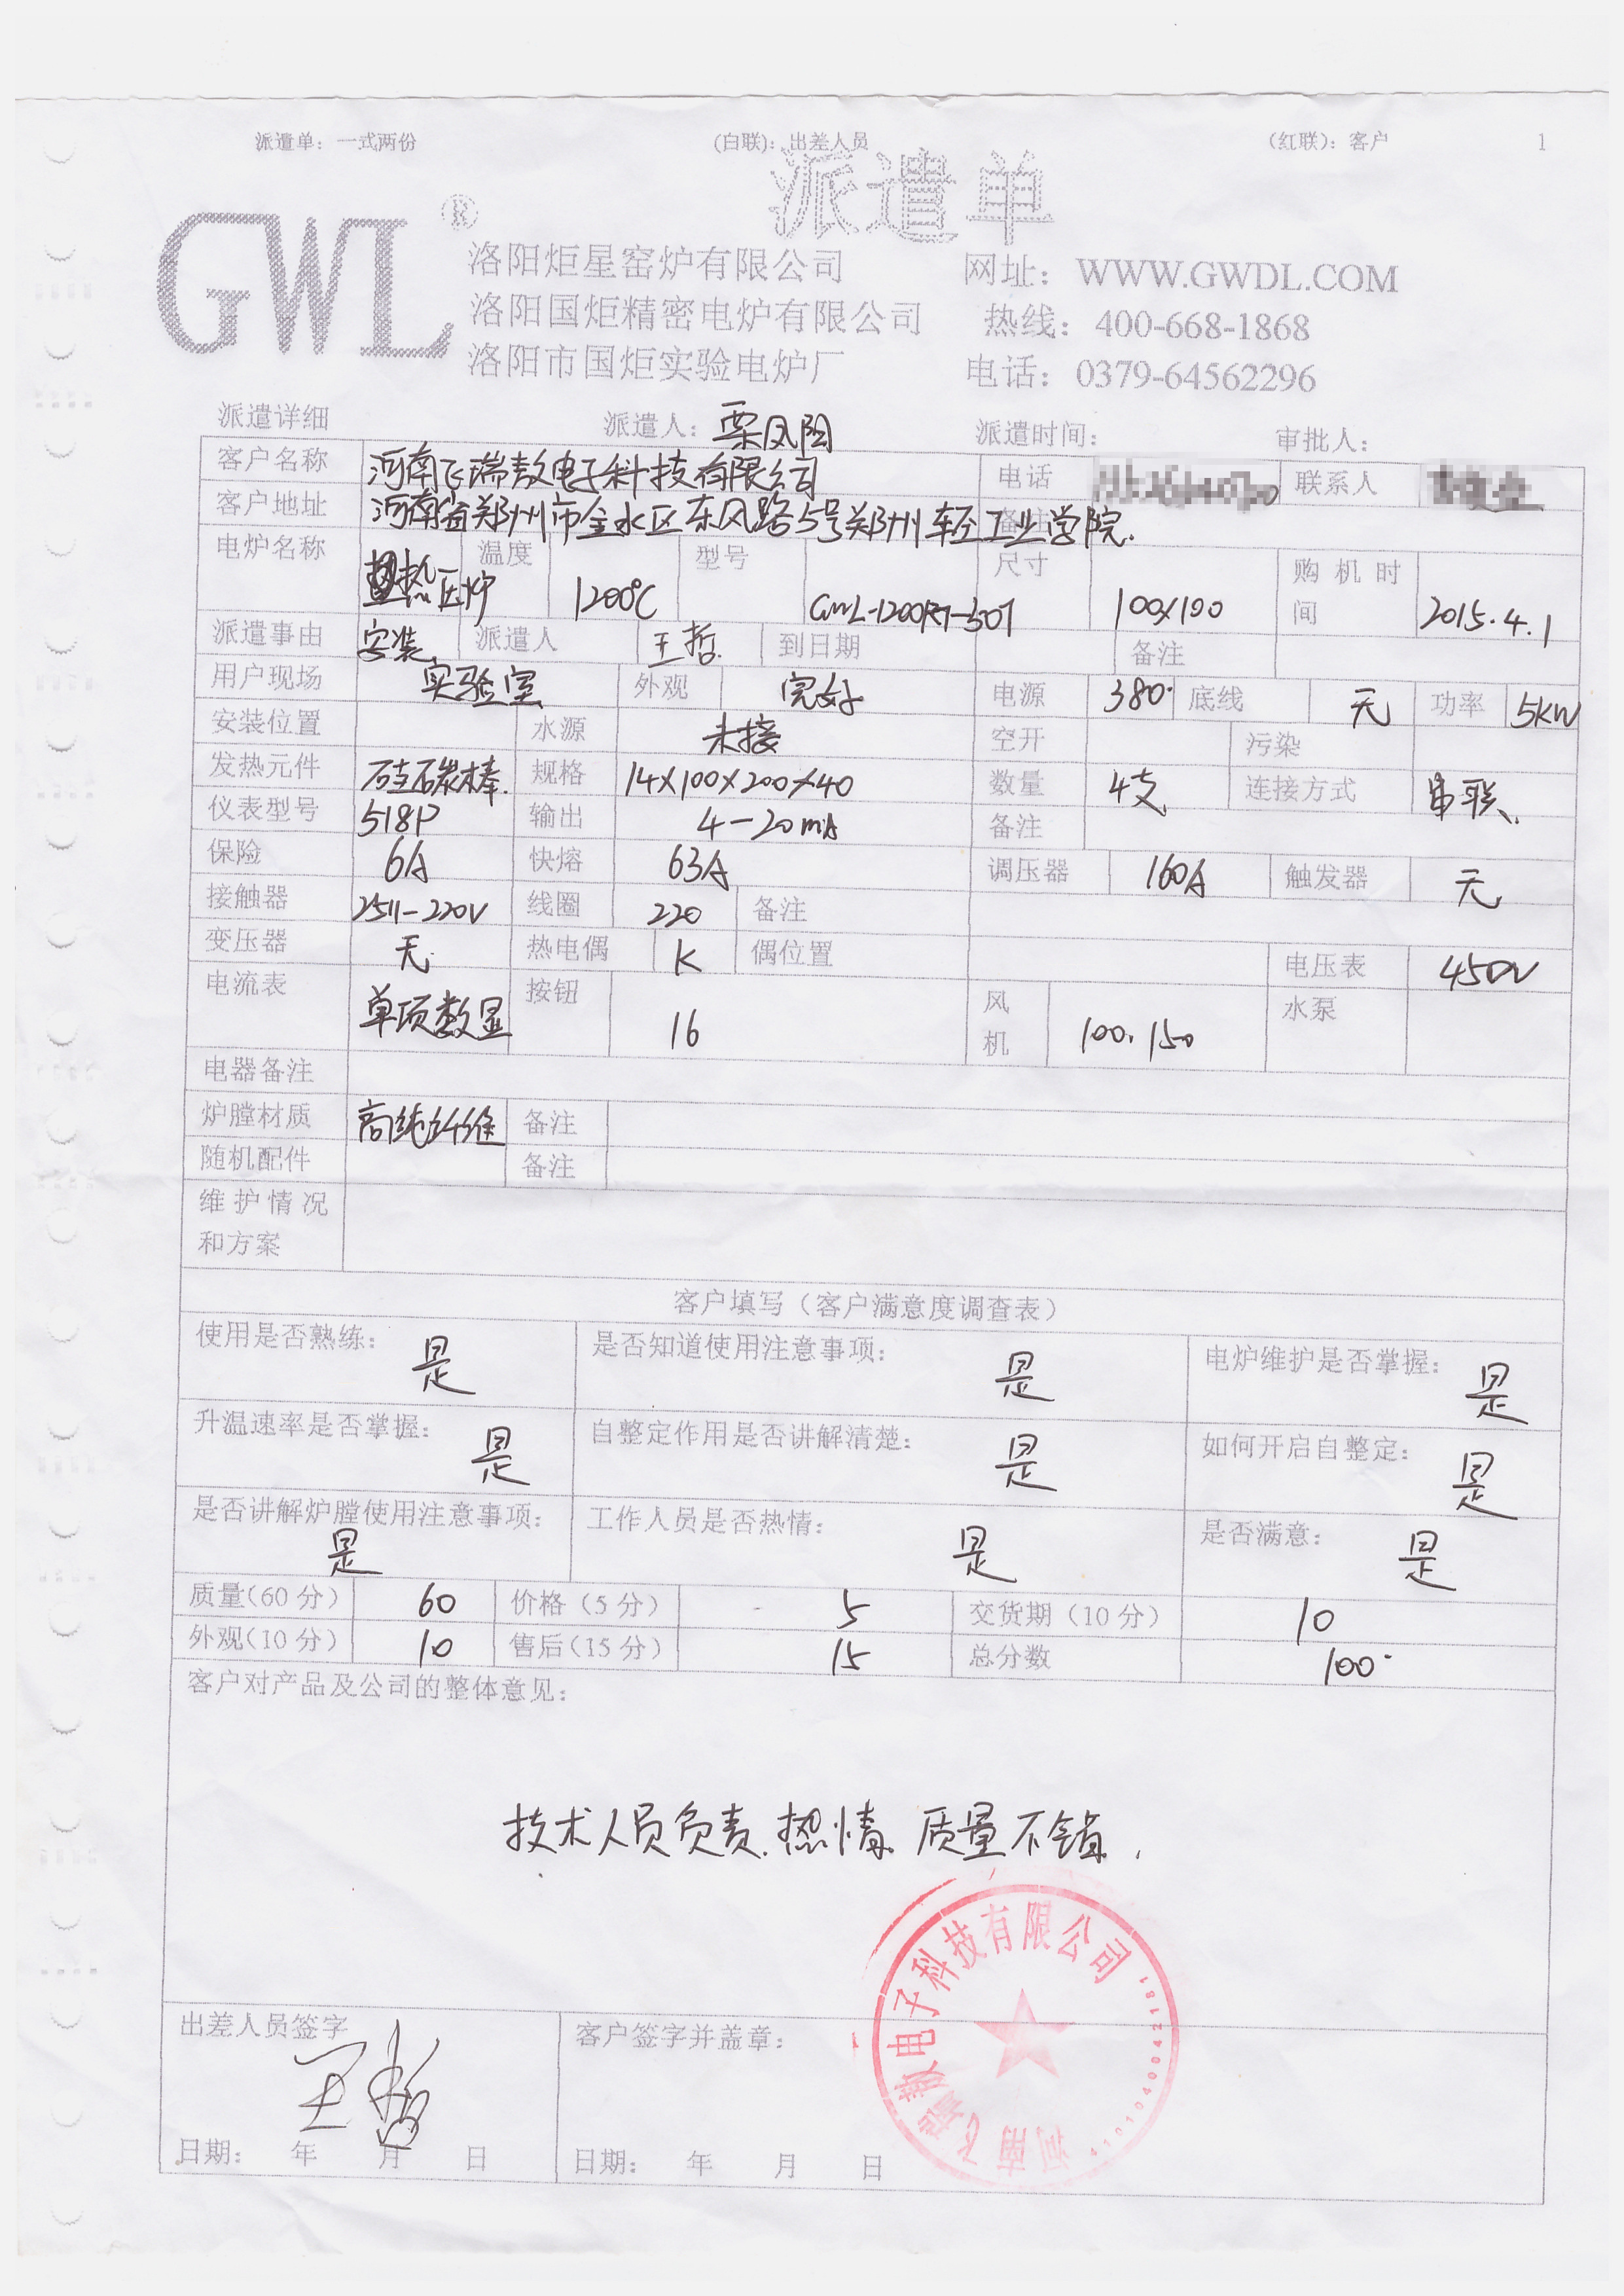 派遣单：一式两份 (白联)：出差人员 (红联)：客户 1
派遣单
GWL®
洛阳炬星窑炉有限公司 网址：WWW.GWDL.COM
洛阳国炬精密电炉有限公司 热线：400-668-1868
洛阳市国炬实验电炉厂 电话：0379-64562296
派遣详细 派遣人：栗凤阳 派遣时间： 审批人：
客户名称 河南飞瑞敖电子科技有限公司 电话 联系人
客户地址 河南省郑州市金水区东风路5号郑州轻工业学院. 备注
电炉名称 热压炉 温度 1200℃ 型号 尺寸 100×100 购机时间 2015.4.1
派遣事由 安装 派遣人 王哲 到日期 备注
用户现场 实验室 外观 完好 电源 380 底线 无 功率 5KW
安装位置 水源 未接 空开 污染
发热元件 硅碳棒. 规格 14×100×200×40 数量 4支 连接方式 串联.
仪表型号 518P 输出 4-20mA 备注
保险 6A 快熔 63A 调压器 160A 触发器 无
接触器 2511-220V 线圈 220 备注
变压器 无 热电偶 K 偶位置 电压表 450V
电流表 单项数显 按钮 16 风机 100.150 水泵
电器备注
炉膛材质 高纯纤维 备注
随机配件 备注
维护情况和方案
客户填写（客户满意度调查表）
使用是否熟练：是 是否知道使用注意事项：是 电炉维护是否掌握：是
升温速率是否掌握：是 自整定作用是否讲解清楚：是 如何开启自整定：是
是否讲解炉膛使用注意事项：是 工作人员是否热情：是 是否满意：是
质量(60分) 60 价格（5分） 5 交货期（10分） 10
外观(10分) 10 售后(15分) 15 总分数 100
客户对产品及公司的整体意见：
技术人员负责.热情.质量不错.
河南飞瑞敖电子科技有限公司
出差人员签字 王哲 客户签字并盖章：
日期： 年 月 日 日期： 年 月 日